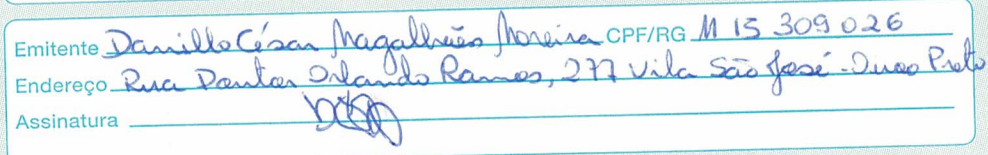 Emitente Danillo César Magalhães Moreira CPF/RG M 15 309 026
Endereço Rua Doutor Orlando Ramos, 277 Vila São José - Ouro Preto
Assinatura